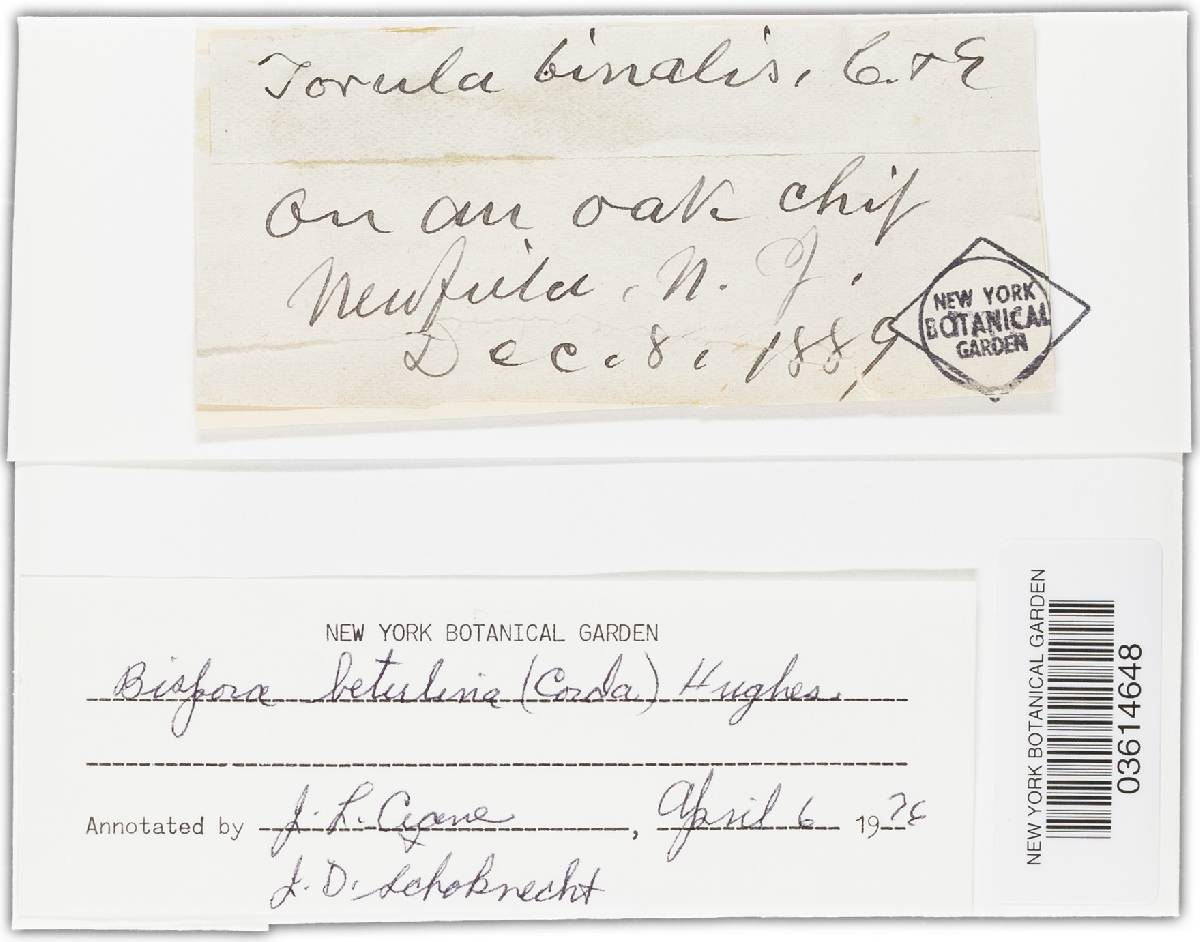 Torula binalis, C. & E
on an oak chip
Newfield, N. J.
Dec. 8. 1889
NEW YORK
BOTANICAL
GARDEN
NEW YORK BOTANICAL GARDEN
Bispora betulina (Corda) Hughes.
Annotated by J. L. Crane, April 6 19
J. D. Schoknecht
NEW YORK BOTANICAL GARDEN
03614648